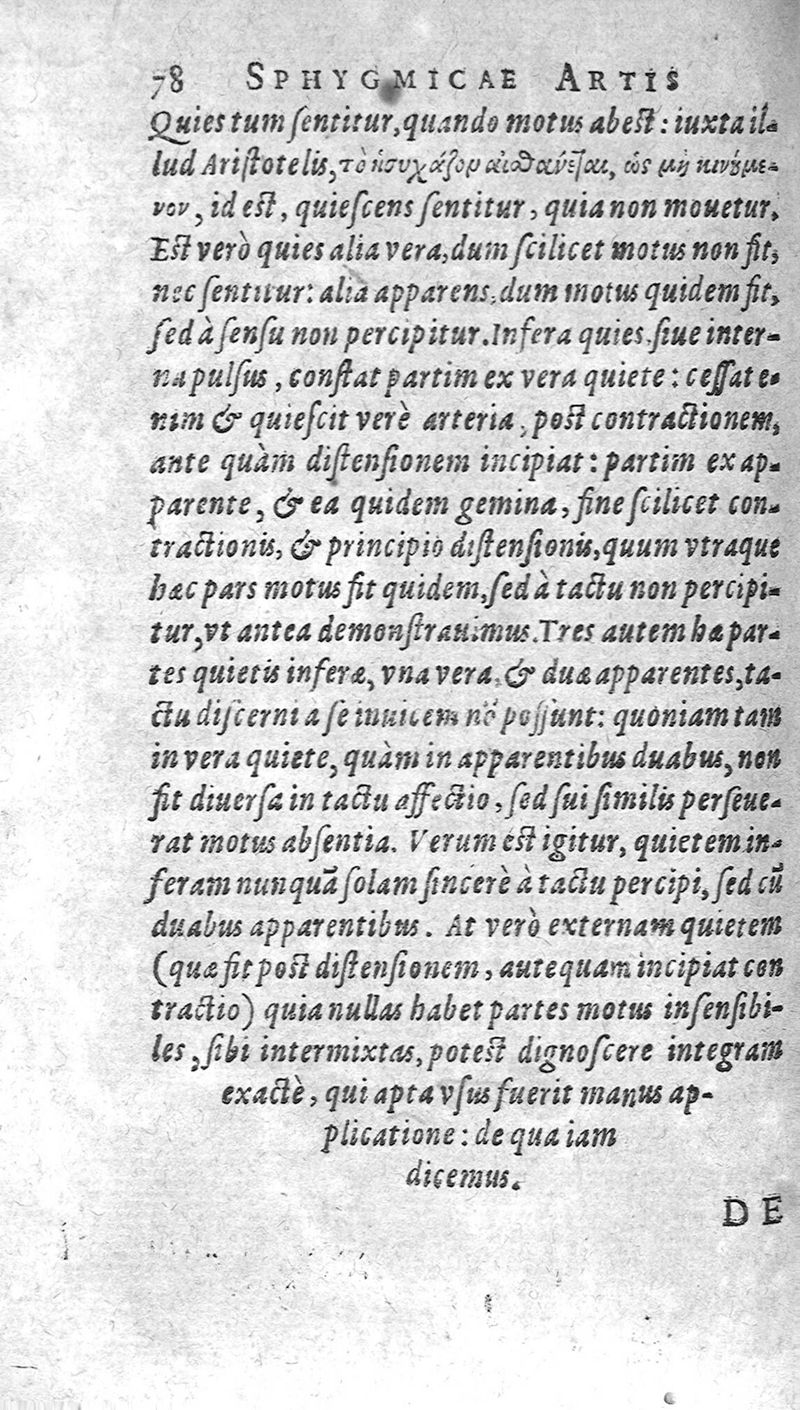 78 SPHYGMICAE ARTIS
Quies tum ſentitur, quando motus abeſt: iuxta il-
lud Ariſtotelis, τὸ ἡσυχάζον αἰσθάνεται, ὡς μὴ κινούμε-
νον, id eſt, quieſcens ſentitur, quia non mouetur.
Eſt verò quies alia vera, dum ſcilicet motus non fit,
nec ſentitur: alia apparens, dum motus quidem fit,
ſed à ſenſu non percipitur. Infera quies, ſiue inter-
na pulſus, conſtat partim ex vera quiete: ceſſat e-
nim & quieſcit verè arteria, poſt contractionem,
ante quàm diſtenſionem incipiat: partim ex ap-
parente, & ea quidem gemina, fine ſcilicet con-
tractionis, & principio diſtenſionis, quum vtraque
hæc pars motus fit quidem, ſed à tactu non percipi-
tur, vt antea demonſtrauimus. Tres autem hæ par-
tes quietis inferæ, vna vera, & duæ apparentes, ta-
ctu diſcerni a ſe inuicem nō poſſunt: quoniam tam
in vera quiete, quàm in apparentibus duabus, non
fit diuerſa in tactu affectio, ſed ſui ſimilis perſeue-
rat motus abſentia. Verum eſt igitur, quietem in-
feram nunquā ſolam ſincerè à tactu percipi, ſed cū
duabus apparentibus. At verò externam quietem
(quæ fit poſt diſtenſionem, aute quam incipiat con
tractio) quia nullas habet partes motus inſenſibi-
les, ſibi intermixtas, poteſt dignoſcere integram
exactè, qui apta vſus fuerit manus ap-
plicatione: de qua iam
dicemus.
DE